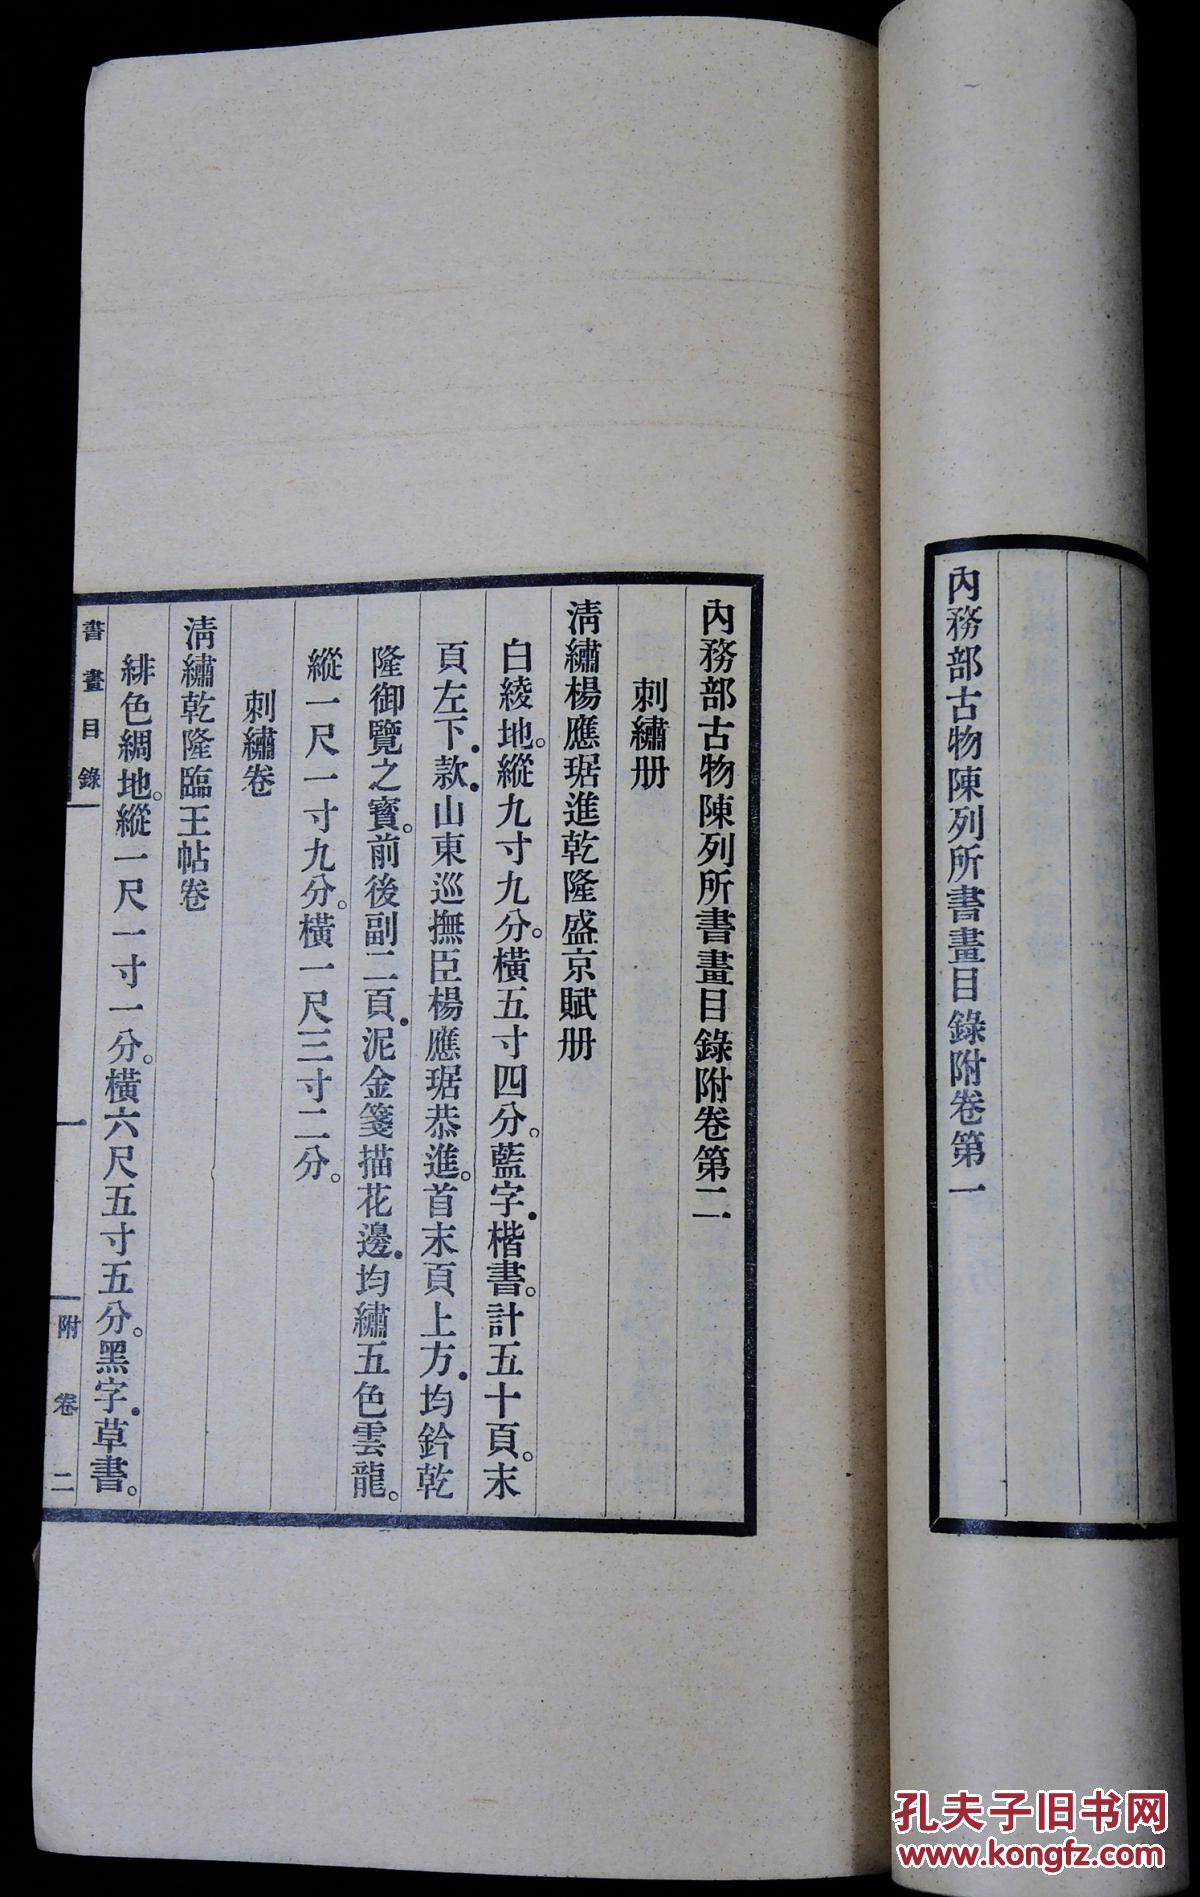 內務部古物陳列所書畫目錄附卷第一
內務部古物陳列所書畫目錄附卷第二
刺繡册
淸繡楊應琚進乾隆盛京賦册
白綾地。縱九寸九分。橫五寸四分。藍字.楷書。計五十頁。末
頁左下.款.山東巡撫臣楊應琚恭進。首末頁上方.均鈐乾
隆御覽之寶。前後副二頁.泥金箋描花邊.均繡五色雲龍。
縱一尺一寸九分。橫一尺三寸二分。
刺繡卷
淸繡乾隆臨王帖卷
緋色綢地。縱一尺一寸一分。橫六尺五寸五分。黑字.草書。
書畫目錄
一
附卷二
孔夫子旧书网
www.kongfz.com